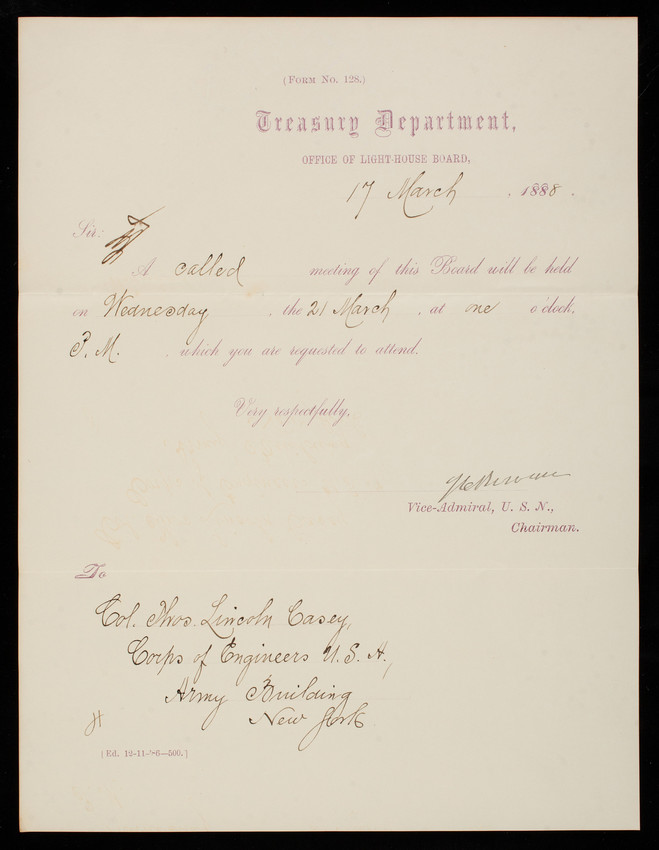 (FORM NO. 128.)
Treasury Department,
OFFICE OF LIGHT-HOUSE BOARD,
17 March, 1888.
Sir:
A called meeting of this Board will be held
on Wednesday, the 21 March, at one o'clock,
P. M. which you are requested to attend.
Very respectfully,
Vice-Admiral, U. S. N.,
Chairman.
To
Col. Thos. Lincoln Casey,
Corps of Engineers U. S. A.,
Army Building
New York
H
[Ed. 12-11-'86—500.]